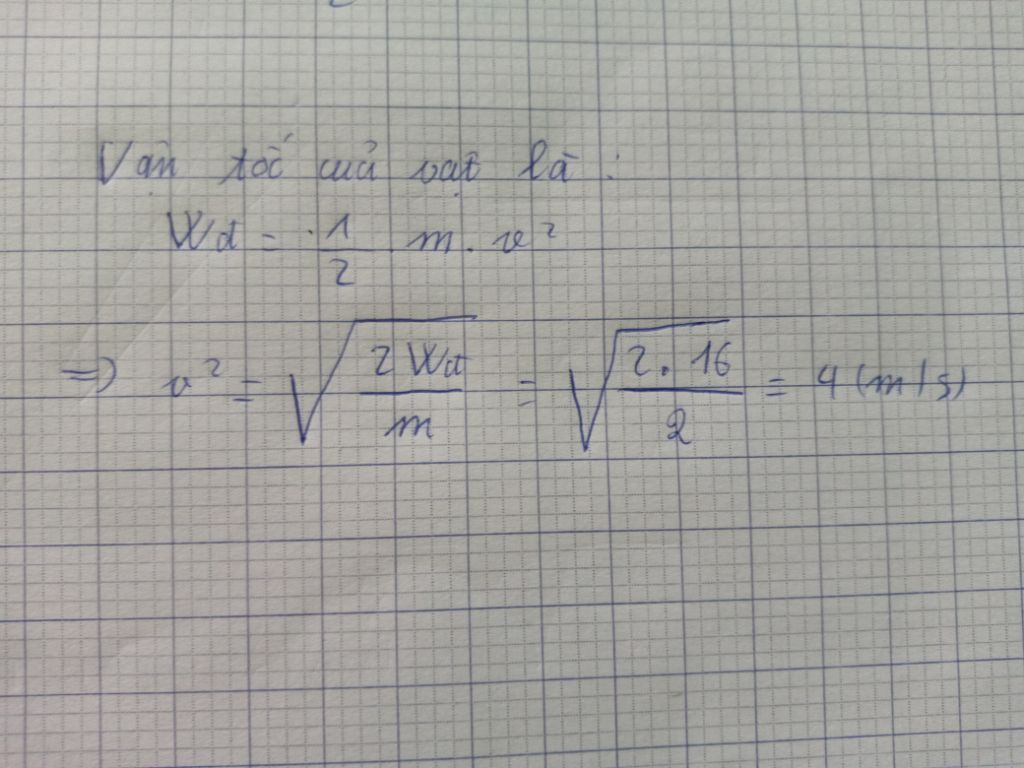 Vận tốc của vật là :
Wđ = 1/2 m . v²
=> v² = √(2 Wđ / m) = √(2 . 16 / 2) = 4 (m/s)